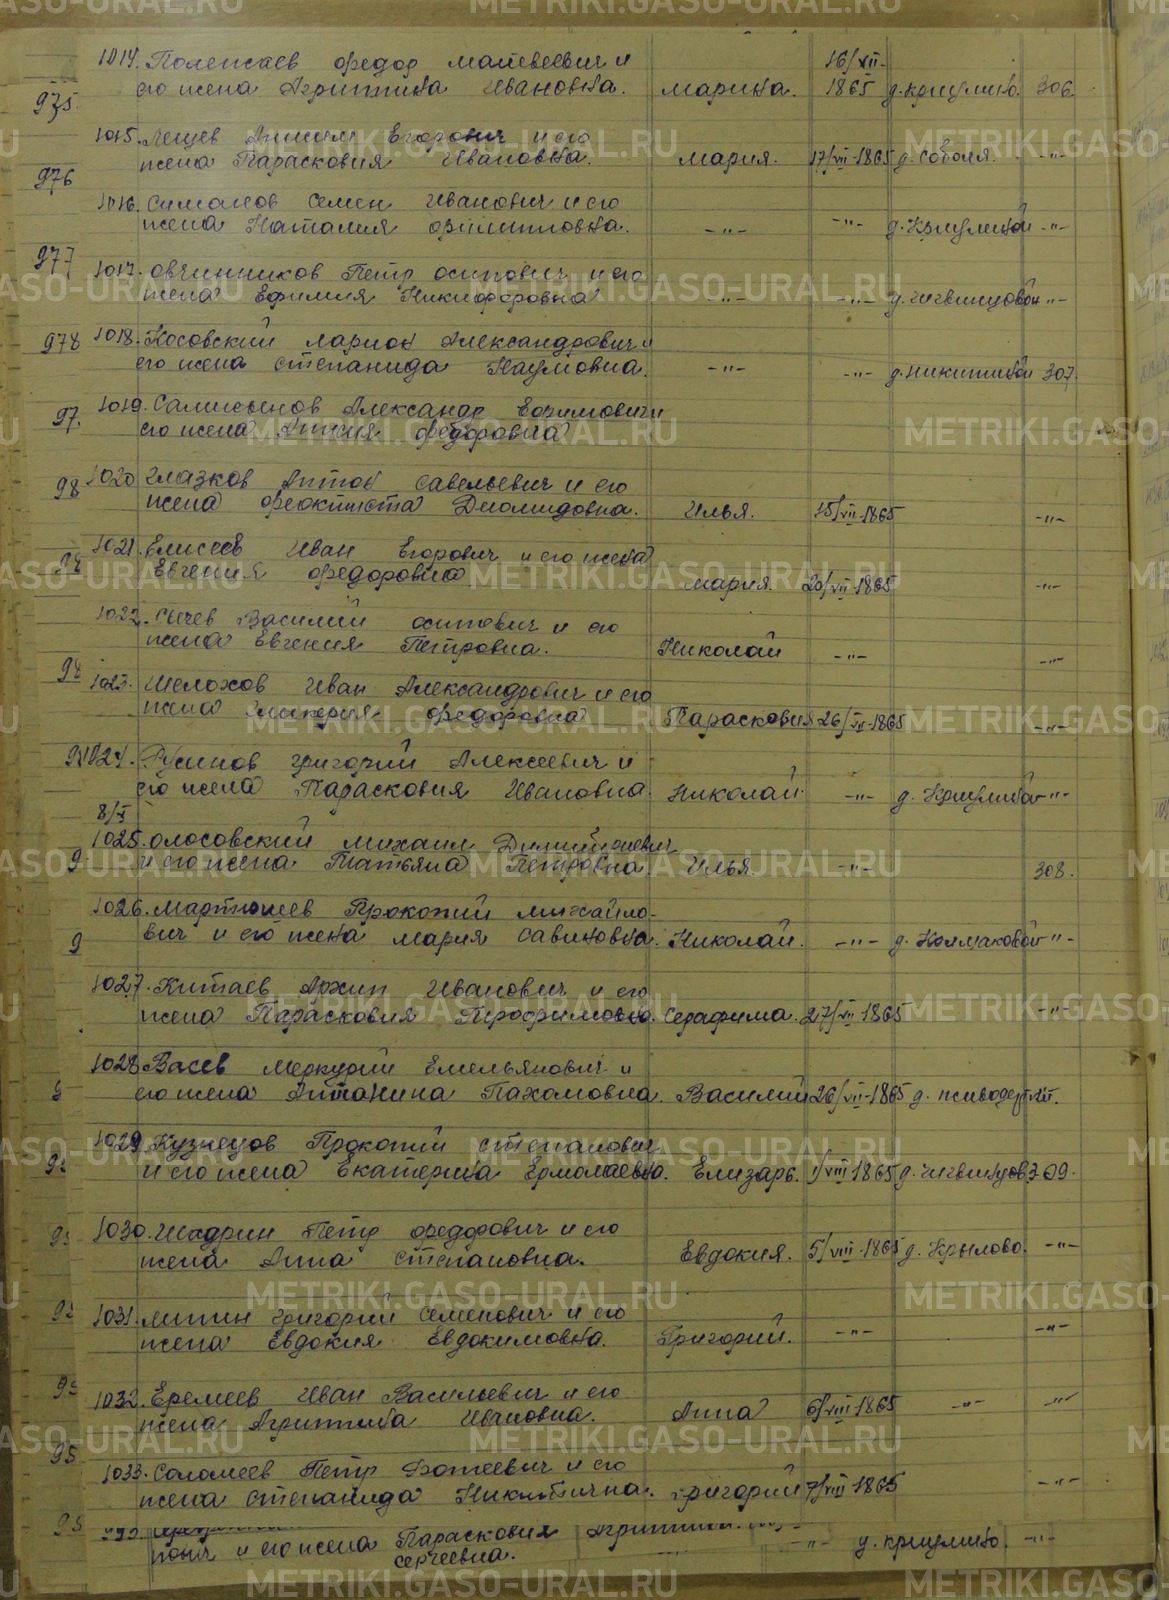 1014. Полежаев Федор Матвеевич и 16/VII-
его жена Агриппина Ивановна. Марина. 1865 д. Криулино. 306
975
1015. Лещев Анисим Егорович и его
жена Парасковия Ивановна. Мария. 17/VII-1865 д. Соболя. -"-
976
1016. Симанов Семен Иванович и его
жена Наталия Филипповна. -"- -"- д. Криулиной -"-
977
1017. Овчинников Петр Осипович и его
жена Ефимия Никифоровна -"- -"- д. Чигвинцовой -"-
978 1018. Косовский Ларион Александрович и
его жена Степанида Наумовна. -"- -"- д. Никитиной 307.
97. 1019. Александр Ефимович и
его жена Анна Федоровна
98 1020 Глазков Антон Савельевич и его
жена Феоктиста Диомидовна. Илья. 15/VII-1865 -"-
1021. Елисеев Иван Егорович и его жена
98 Евгения Федоровна Мария. 20/VII-1865 -"-
1022. Сычев Василий Осипович и его
жена Евгения Петровна. Николай -"- -"-
98 1023. Шелохов Иван Александрович и его
жена Гликерия Федоровна Парасковия 26/VII-1865 -"-
1024. Русинов Григорий Алексеевич и
его жена Парасковия Ивановна Николай -"- д. Криулиной -"-
8/X
1025. Олосовский Михаил Димитриевич
9 и его жена Татьяна Петровна Илья -"- 308.
1026. Мартюшев Прокопий Михайло-
9 вич и его жена Мария Савиновна. Николай. -"- д. Колмаковой -"-
1027. Китаев Архип Иванович и его
жена Парасковия Трофимовна. Серафима. 27/VII-1865 -"-
1028 Васев Меркурий Емельянович и
его жена Антанина Пахомовна. Василий 26/VII-1865 д.
1029 Кузнецов Прокопий Степанович
и его жена Екатерина Ермолаевна. Елизарь. 1/VIII-1865 д. Чигвинцов. 309.
1030. Шадрин Петр Федорович и его
жена Анна Степановна. Евдокия. 5/VIII-1865 д. Крылово. -"-
1031. Липин Григорий Семенович и его
жена Евдокия Евдокимовна. Григорий. -"- -"-
1032. Еремеев Иван Васильевич и его
жена Агриппина Ивановна. Анна 6/VIII-1865 -"- -"-
95
1033. Соломеев Петр Фотеевич и его
жена Степанида Никитична. Григорий 7/VIII 1865 -"-
и его жена Парасковия Агриппина. -"- д. Криулино. -"-
Сергеевна.
METRIKI.GASO-URAL.RU